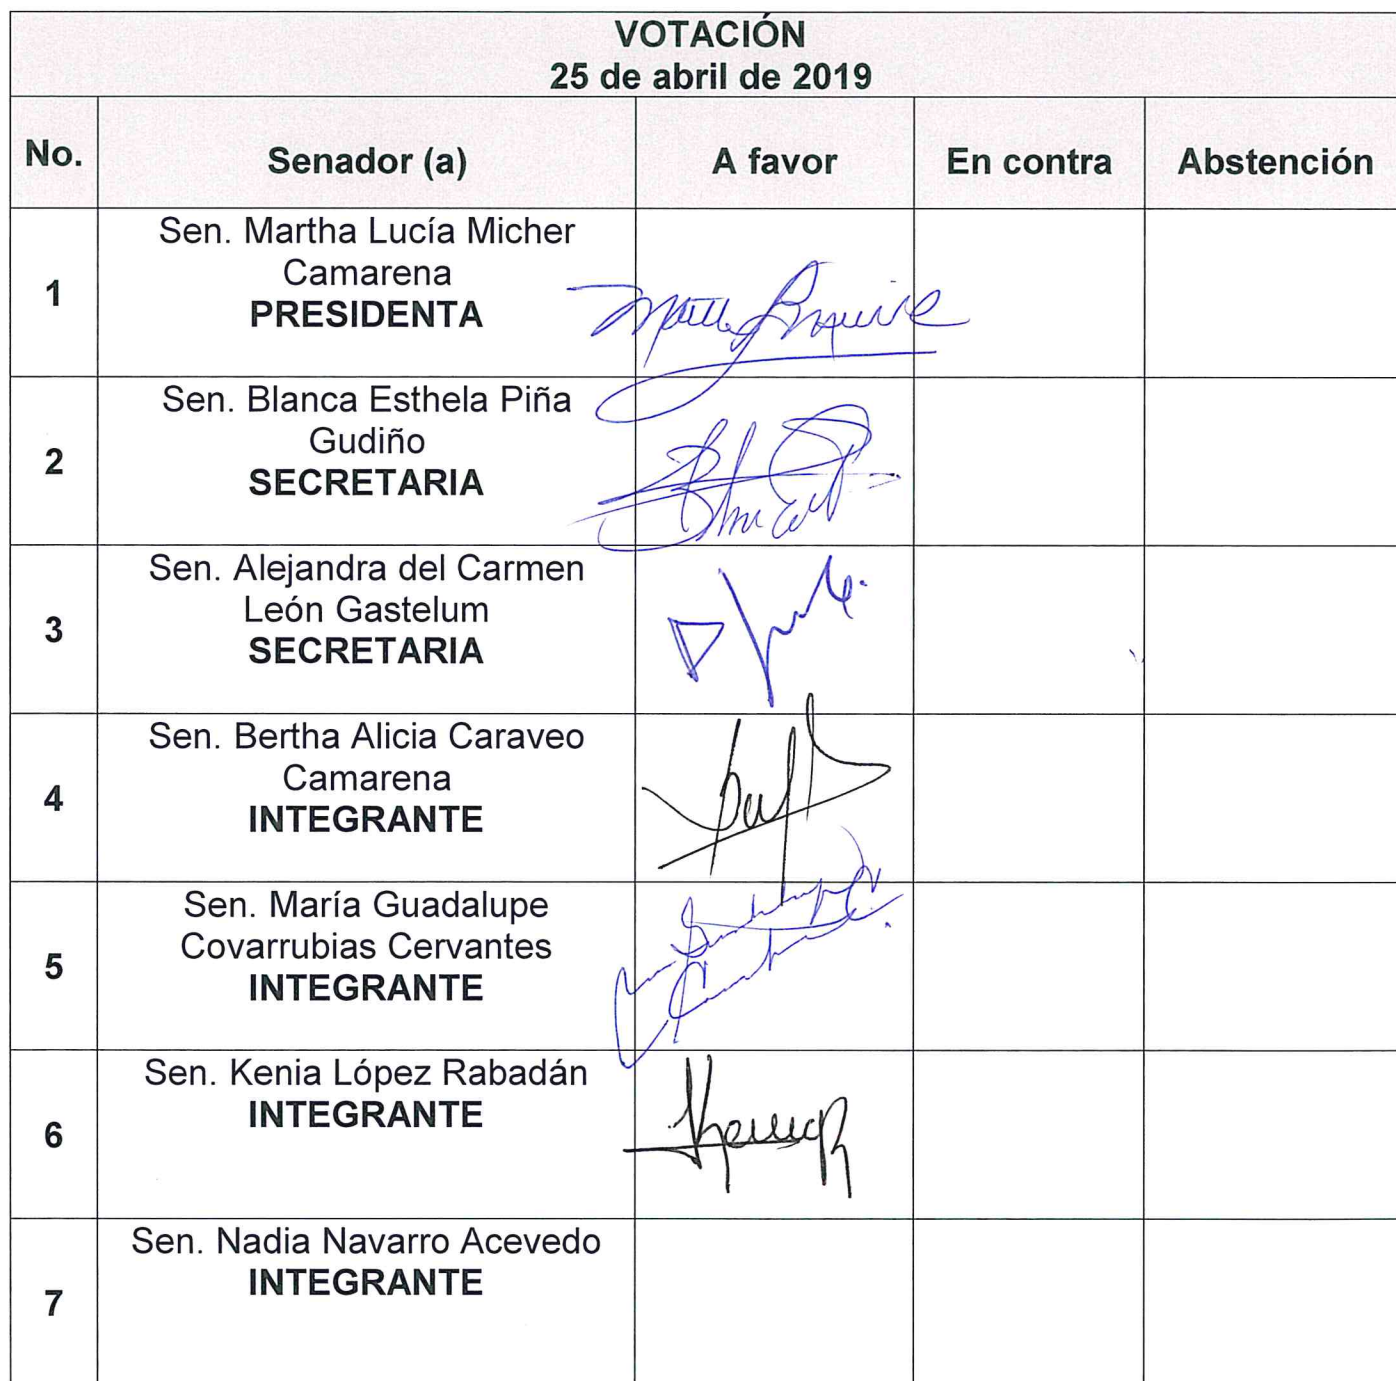 VOTACIÓN
25 de abril de 2019
No. Senador (a) A favor En contra Abstención
1 Sen. Martha Lucía Micher
Camarena
PRESIDENTA
2 Sen. Blanca Esthela Piña
Gudiño
SECRETARIA
3 Sen. Alejandra del Carmen
León Gastelum
SECRETARIA
4 Sen. Bertha Alicia Caraveo
Camarena
INTEGRANTE
5 Sen. María Guadalupe
Covarrubias Cervantes
INTEGRANTE
6 Sen. Kenia López Rabadán
INTEGRANTE
7 Sen. Nadia Navarro Acevedo
INTEGRANTE